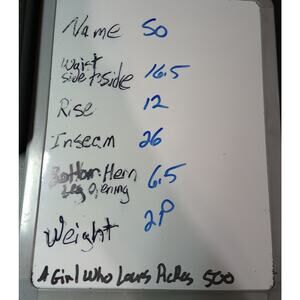 Name 50
Waist
side to side 16.5
Rise 12
Inseam 26
Bottom Hem
Leg Opening 6.5
Weight 2P
A Girl Who Loves Pickles 500